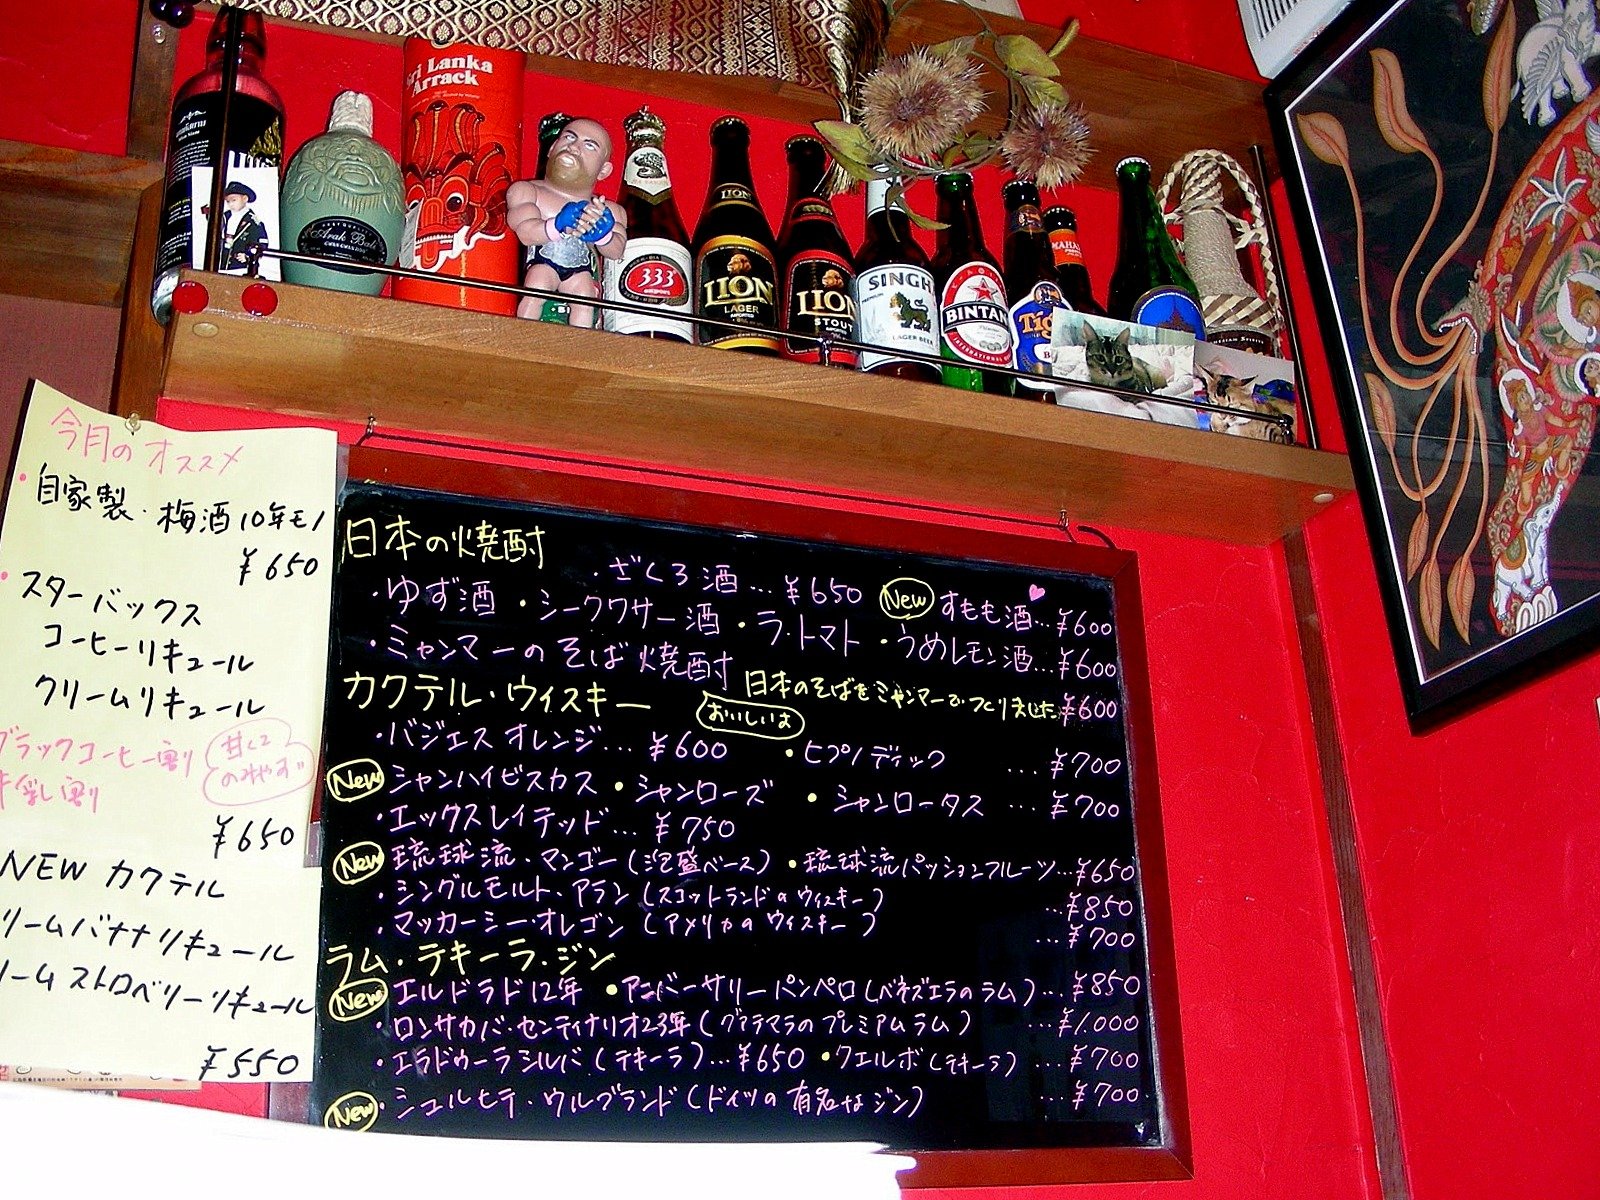 Sri Lanka
Arrack
Arak Bali
333
LION
LAGER
LION
STOUT
SINGH
LAGER BEER
BINTAN
Tig
MAHA
今月のオススメ
・自家製・梅酒10年モノ
¥650
・スターバックス
コーヒーリキュール
クリームリキュール
ブラックコーヒー割り
牛乳割り
甘くて
のみやす
¥650
NEW カクテル
リームバナナリキュール
リームストロベリーリキュール
¥550
日本の焼酎
・ざくろ酒…¥650 New すもも酒…¥600
・ゆず酒 ・シークワサー酒 ・ラ・トマト ・うめレモン酒…¥600
・ミャンマーのそば焼酎 日本のそばをミャンマーでつくりました ¥600
おいしいよ
カクテル・ウィスキー
・バジェスオレンジ…¥600 ・ヒプノディック …¥700
New シャンハイビスカス ・シャンローズ ・シャンロータス …¥700
・エックスレイテッド…¥750
New 琉球流・マンゴー(泡盛ベース) ・琉球流パッションフルーツ…¥650
・シングルモルト・アラン(スコットランドのウィスキー) …¥850
・マッカーシー・オレゴン(アメリカのウィスキー) …¥700
ラム・テキーラ・ジン
New エルドラド12年 ・アニバーサリーパンペロ(ベネズエラのラム)…¥850
・ロンサカパ・センティナリオ23年(グアテマラのプレミアムラム) …¥1.000
・エラドゥーラシルバ(テキーラ)…¥650 ・クエルボ(テキーラ) …¥700
New ・シュルヒテ・ウルブランド(ドイツの有名なジン) …¥700